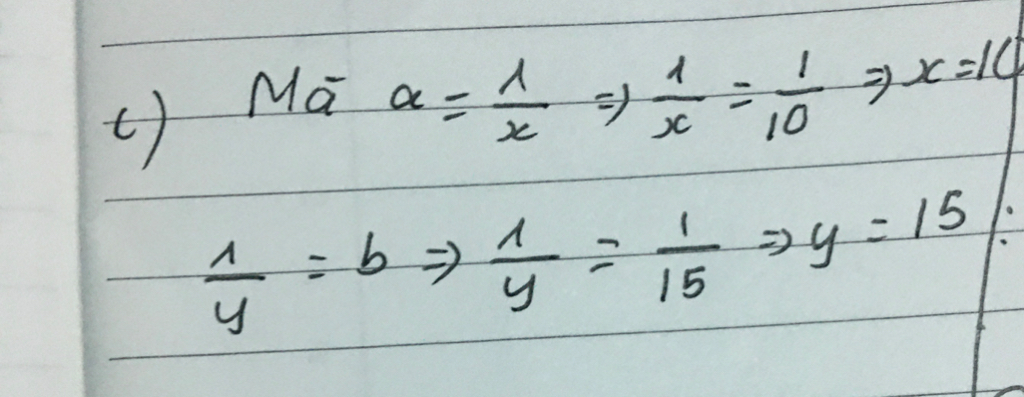 c) Mà a = 1/x => 1/x = 1/10 => x = 10
1/y = b => 1/y = 1/15 => y = 15